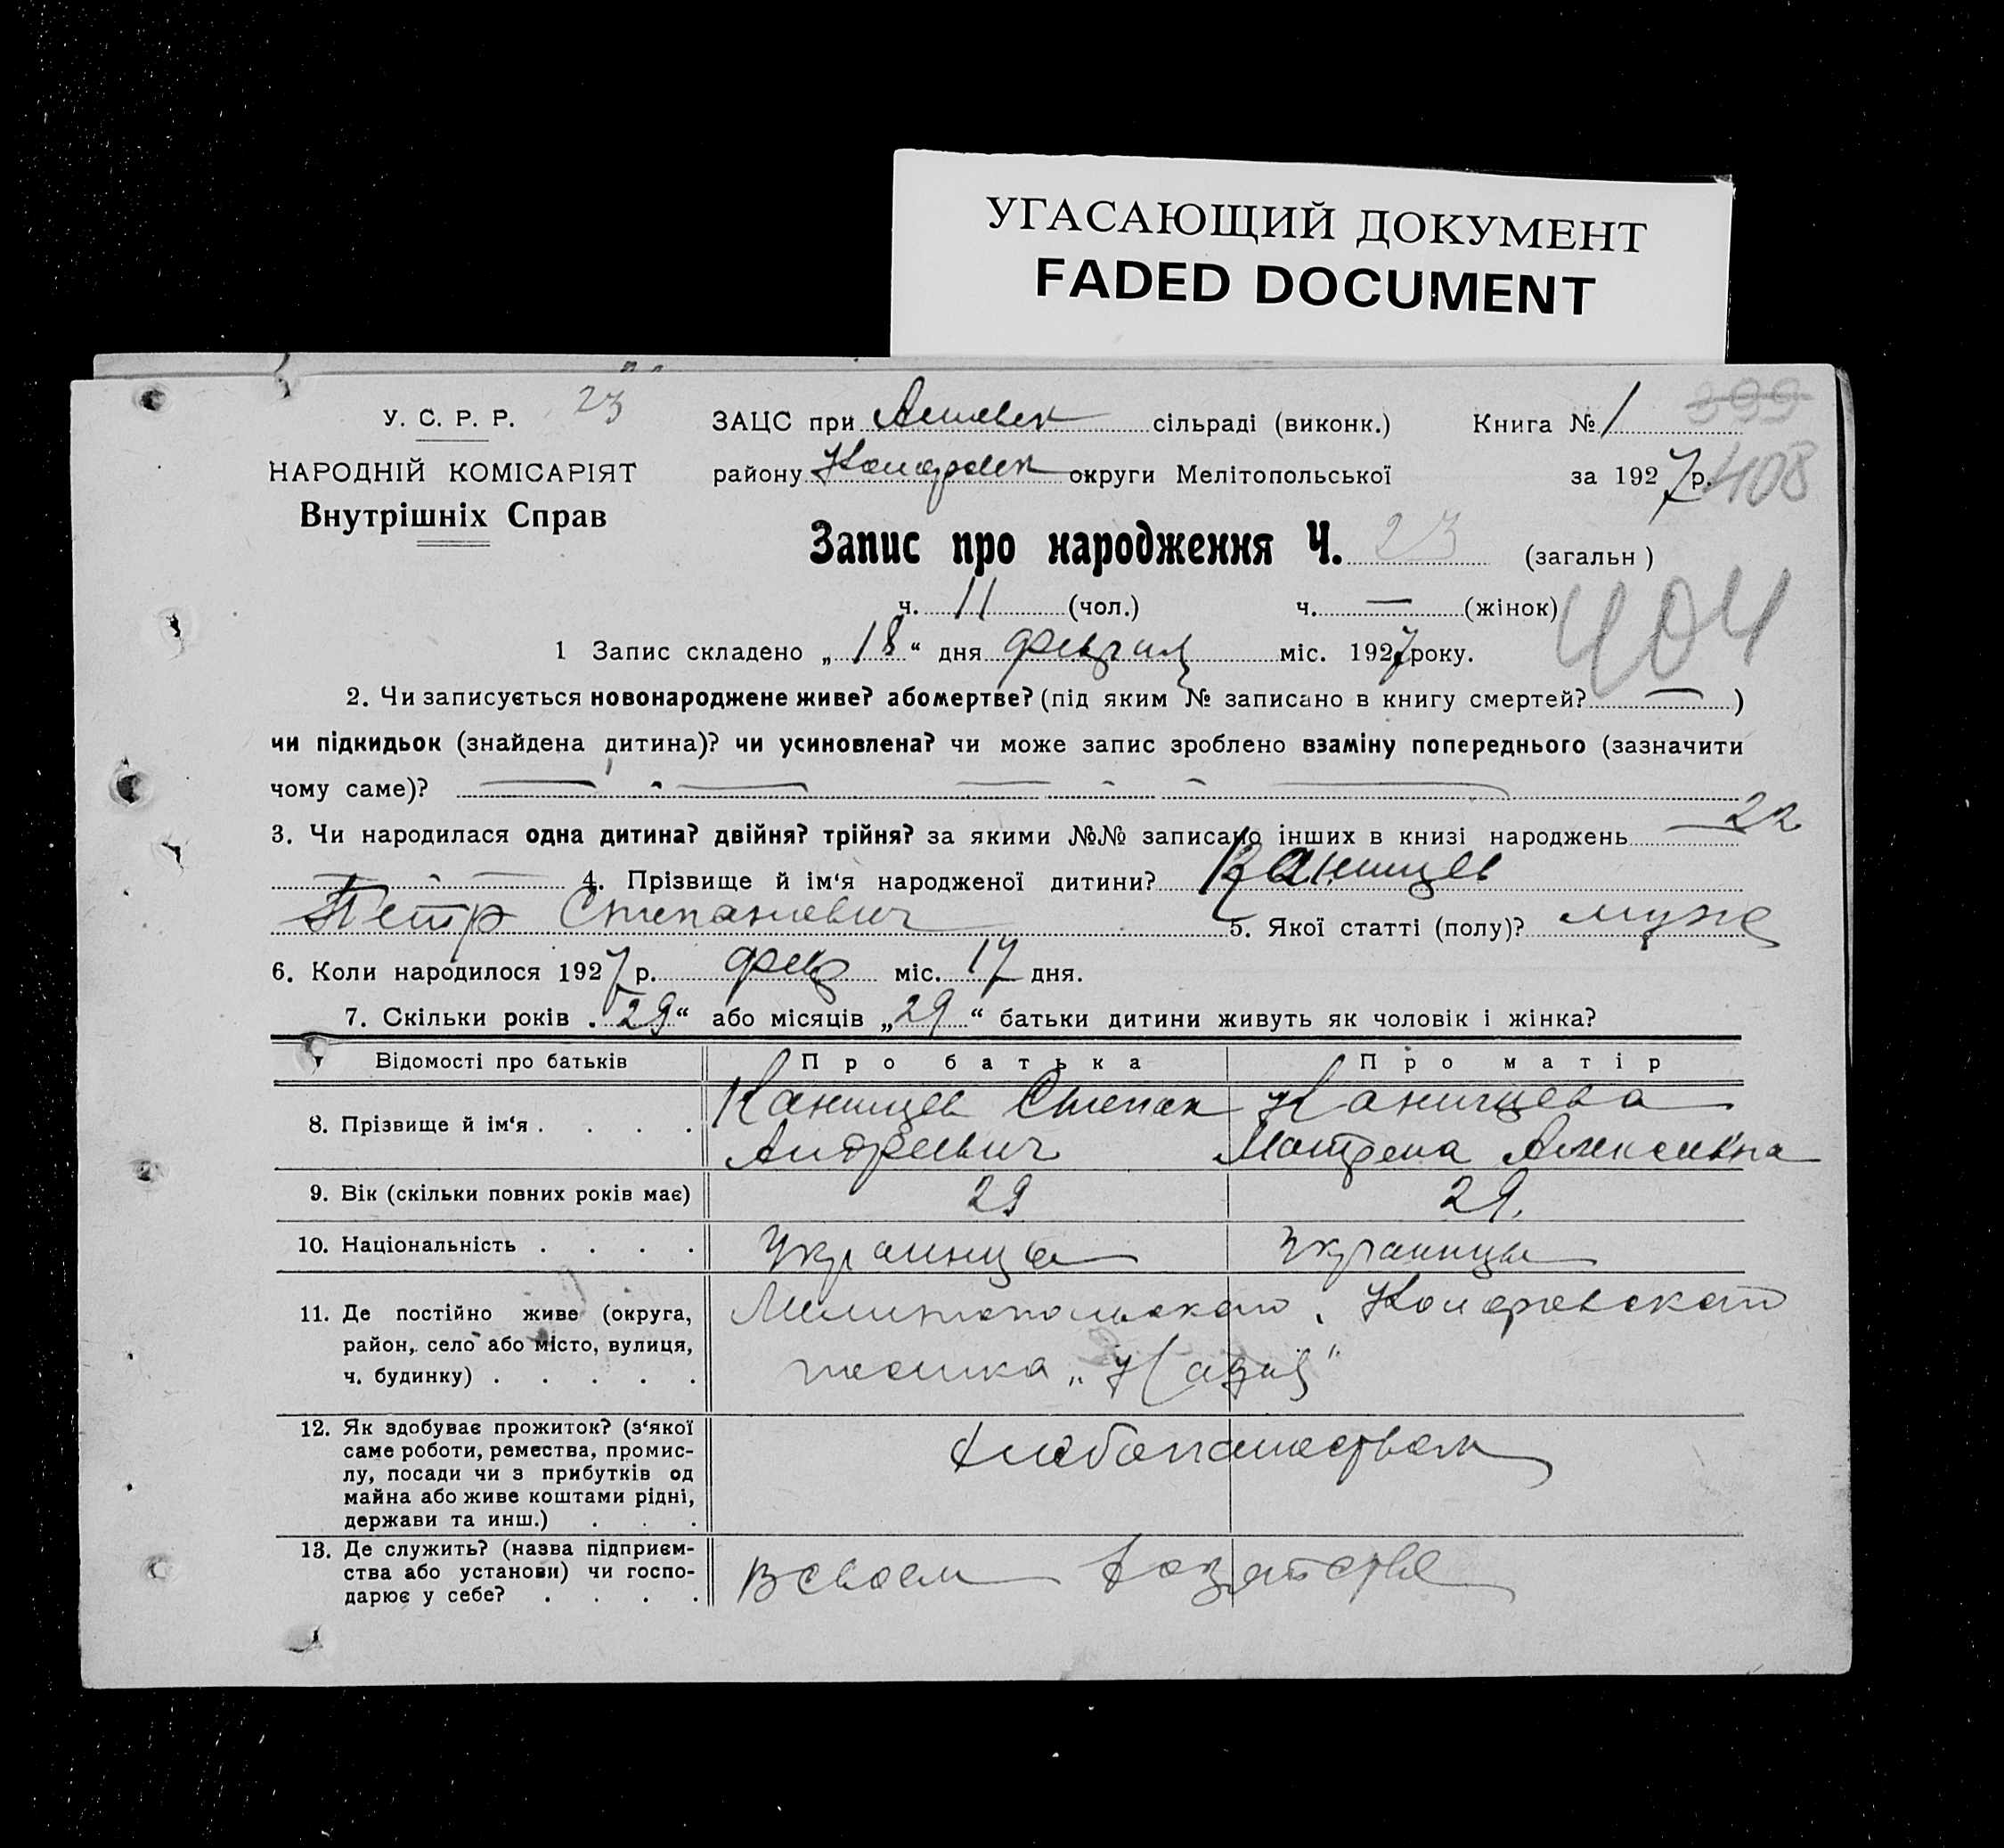 УГАСАЮЩИЙ ДОКУМЕНТ
FADED DOCUMENT
У. С. Р. Р. 23
НАРОДНІЙ КОМІСАРІЯТ
Внутрішніх Справ
ЗАЦС при сільраді (виконк.) Книга № 1 399
району округи Мелітопольської за 1927 р. 408
Запис про народження Ч. 23 (загальн)
ч. 11 (чол.) ч. — (жінок) 404
1 Запис складено „18“ дня міс. 1927 року.
2. Чи записується новонароджене живе? або мертве? (під яким № записано в книгу смертей? — )
чи підкидьок (знайдена дитина)? чи усиновлена? чи може запис зроблено взаміну попереднього (зазначити
чому саме)?
3. Чи народилася одна дитина? двійня? трійня? за якими №№ записано інших в книзі народжень 22
4. Прізвище й ім‘я народженої дитини? Канищев
Петр Степаневич 5. Якої статті (полу)? муже
6. Коли народилося 1927 р. фев міс. 17 дня.
7. Скільки років „29“ або місяців „29“ батьки дитини живуть як чоловік і жінка?
Відомості про батьків Про батька Про матір
8. Прізвище й ім‘я . . . . Канищев Степан Канищева
Андреевич Матрена Алексеевна
9. Вік (скільки повних років має) 29 29.
10. Національність . . . . Украинца Украинца
11. Де постійно живе (округа,
район, село або місто, вулиця,
ч. будинку) . . . . .
Мелитопольского
12. Як здобуває прожиток? (з‘якої
саме роботи, ремества, промис-
лу, посади чи з прибутків од
майна або живе коштами рідні,
держави та инш.) . . .
хлебопашеством
13. Де служить? (назва підприєм-
ства або установи) чи госпо-
дарює у себе? . . . .
В своем хозяйстве